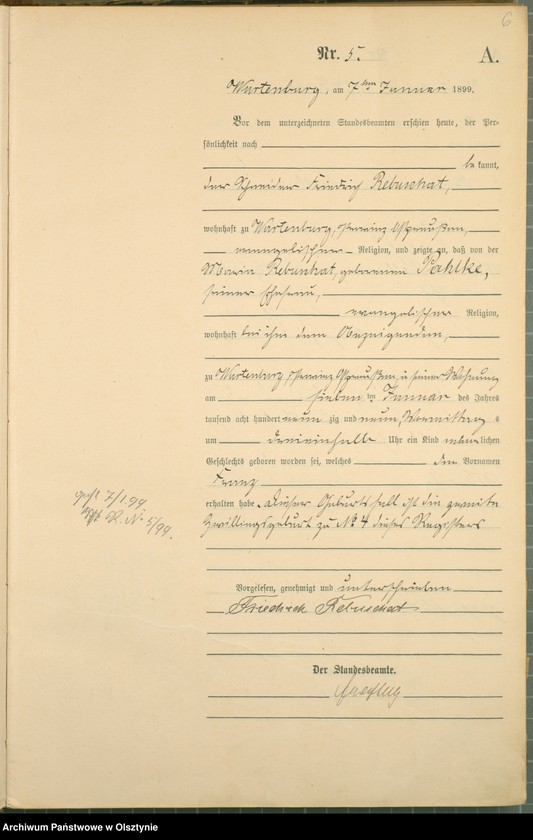 6
Nr. 5.
A.
Wartenburg, am 7ten Januar 1899.
Vor dem unterzeichneten Standesbeamten erschien heute, der Per-
sönlichkeit nach
bekannt,
der Schneider Friedrich Rebuschat,
wohnhaft zu Wartenburg, Provinz Ostpreußen,
evangelischer Religion, und zeigte an, daß von der
Maria Rebuschat, geborenen Pahlke,
seiner Ehefrau,
evangelischer Religion,
wohnhaft bei ihm dem Anzeigenden,
zu Wartenburg, Provinz Ostpreußen, in seiner Wohnung
am sieben ten Januar des Jahres
tausend acht hundert neun zig und neun, Vormittag s
um Uhr ein Kind männlichen
Geschlechts geboren worden sei, welches den Vornamen
Franz
erhalten habe. Dieser Geburtsfall ist die zweite
Zwillingsgeburt zu No 4 dieses Registers
7/1 99
No 5/99.
Vorgelesen, genehmigt und unterschrieben
Friedrich Rebuschat
Der Standesbeamte.
Archiwum Państwowe w Olsztynie